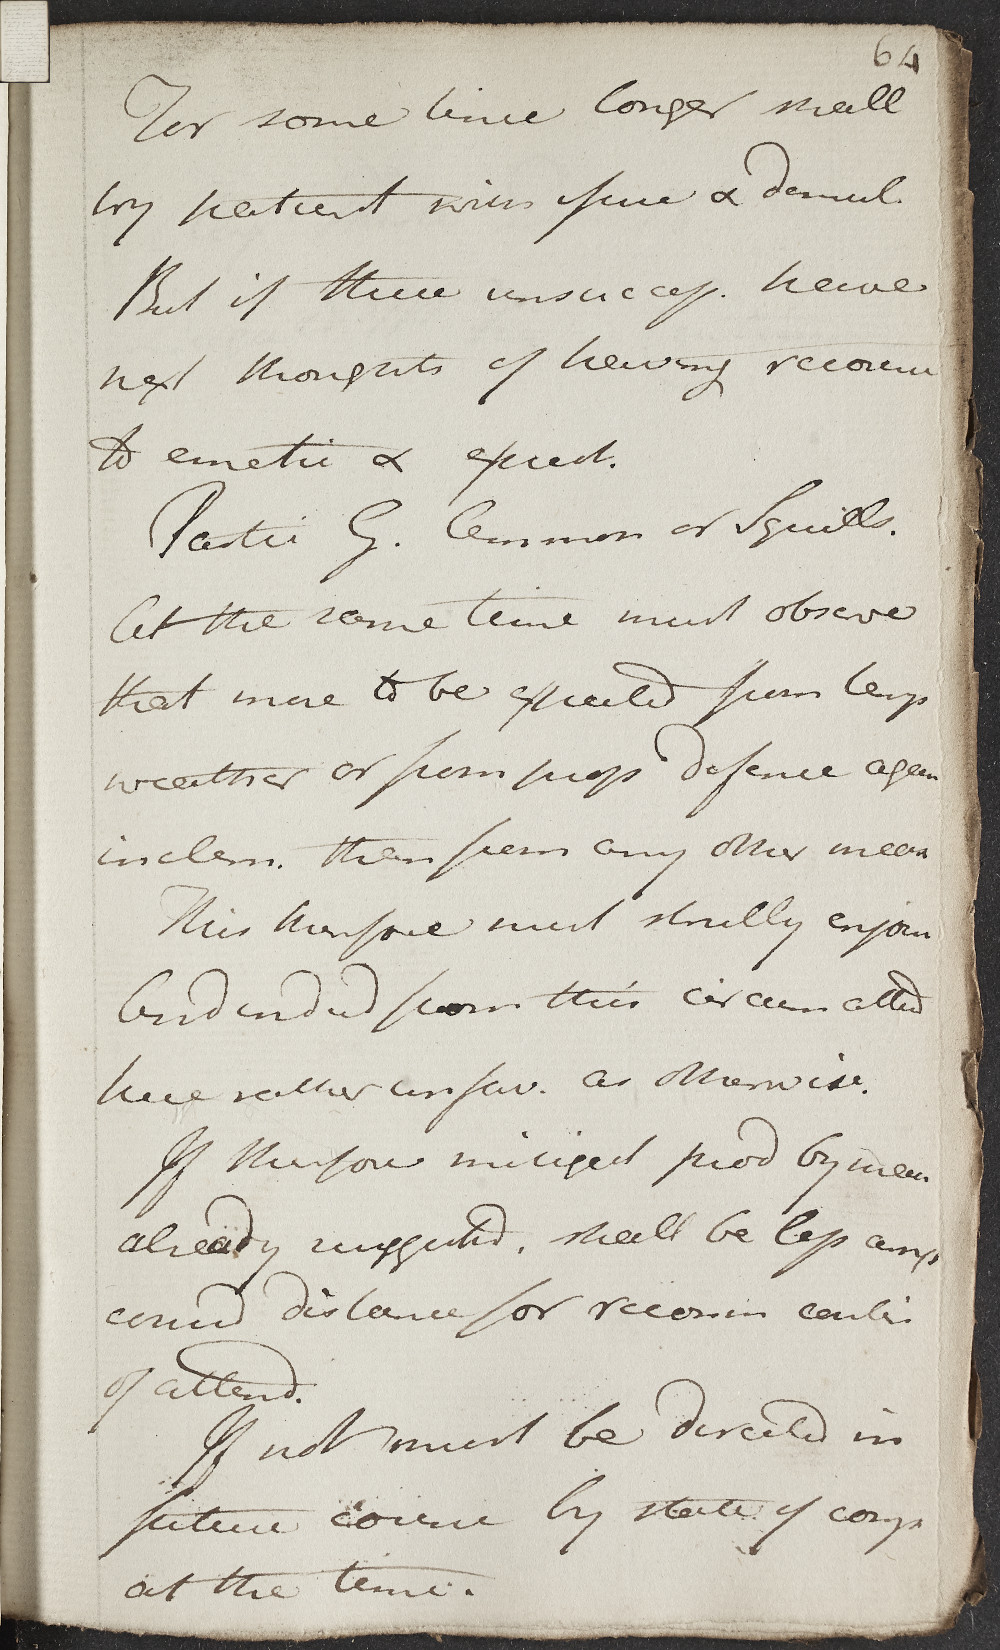 64
For some time longer shall
try patient with sfine & demul.
But if these unsuccess. have
next thoughts of having recourse
to emetic & expect.
Partic G. Ammon or Squills.
At the same time must observe
that more to be expected from temp
weather or from prop defence again
inclem. than from any other mean
This therefore must strictly enjoin
And indeed from this circum attend
here rather unfav. as otherwise.
If therefore mitigat prod by mean
already suggested, shall be less anx
cernd distance for recomm contin
of attend.
If not must be directed in
future course by state of comp
at the time.